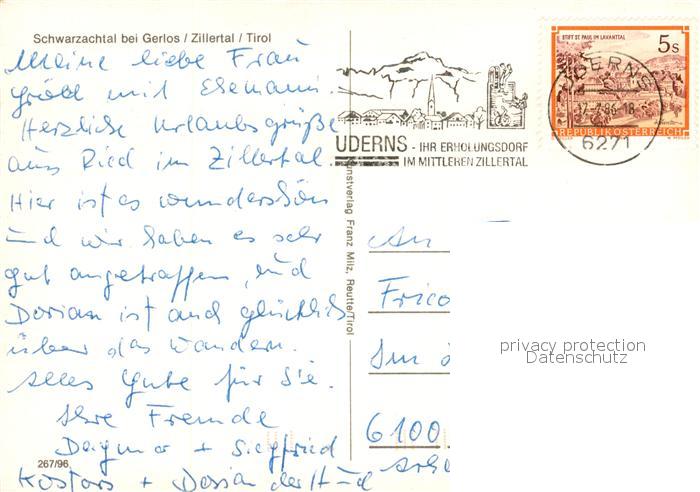 Schwarzachtal bei Gerlos / Zillertal / Tirol
Meine liebe Frau
Groll mit Ehemann.
Herzliche Urlaubsgrüße
aus Ried im Zillertal.
Hier ist es wunderschön
und wir haben es sehr
gut angetroffen, und
Dorian ist auch glücklich
über das Wandern.
Alles Gute für Sie.
Ihre Freunde
Dagmar + Siegfried
+ Dorian der Hund
267/96
Kunstverlag Franz Milz, Reutte/Tirol
UDERNS - IHR ERHOLUNGSDORF
IM MITTLEREN ZILLERTAL
STIFT ST. PAUL IM LAVANTTAL
5s
REPUBLIK ÖSTERREICH
UDERNS
12.7.86-18
6271
An
6100
privacy protection
Datenschutz